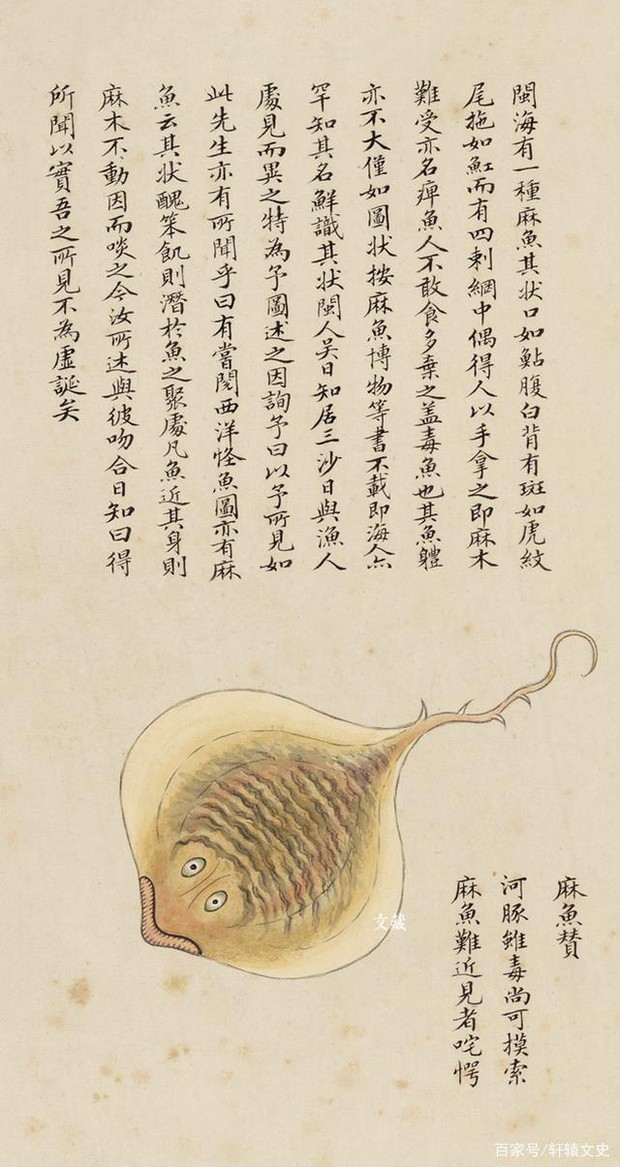 閩海有一種麻魚其狀口如鮎腹白背有斑如虎紋
尾拖如魟而有四刺網中偶得人以手拿之即麻木
難受亦名痺魚人不敢食多棄之蓋毒魚也其魚體
亦不大僅如圖狀按麻魚博物等書不載即海人亦
罕知其名鮮識其狀閩人吳日知居三沙日與漁人
處見而異之特為予圖述之因詢予曰以予所見如
此先生亦有所聞乎曰有嘗閱西洋怪魚圖亦有麻
魚云其狀醜笨飢則潛於魚之聚處凡魚近其身則
麻木不動因而啖之今汝所述與彼吻合日知曰得
所聞以實吾之所見不為虛誕矣
麻魚贊
河豚雖毒尚可摸索
麻魚難近見者咤愕
文藏
百家号/轩辕文史